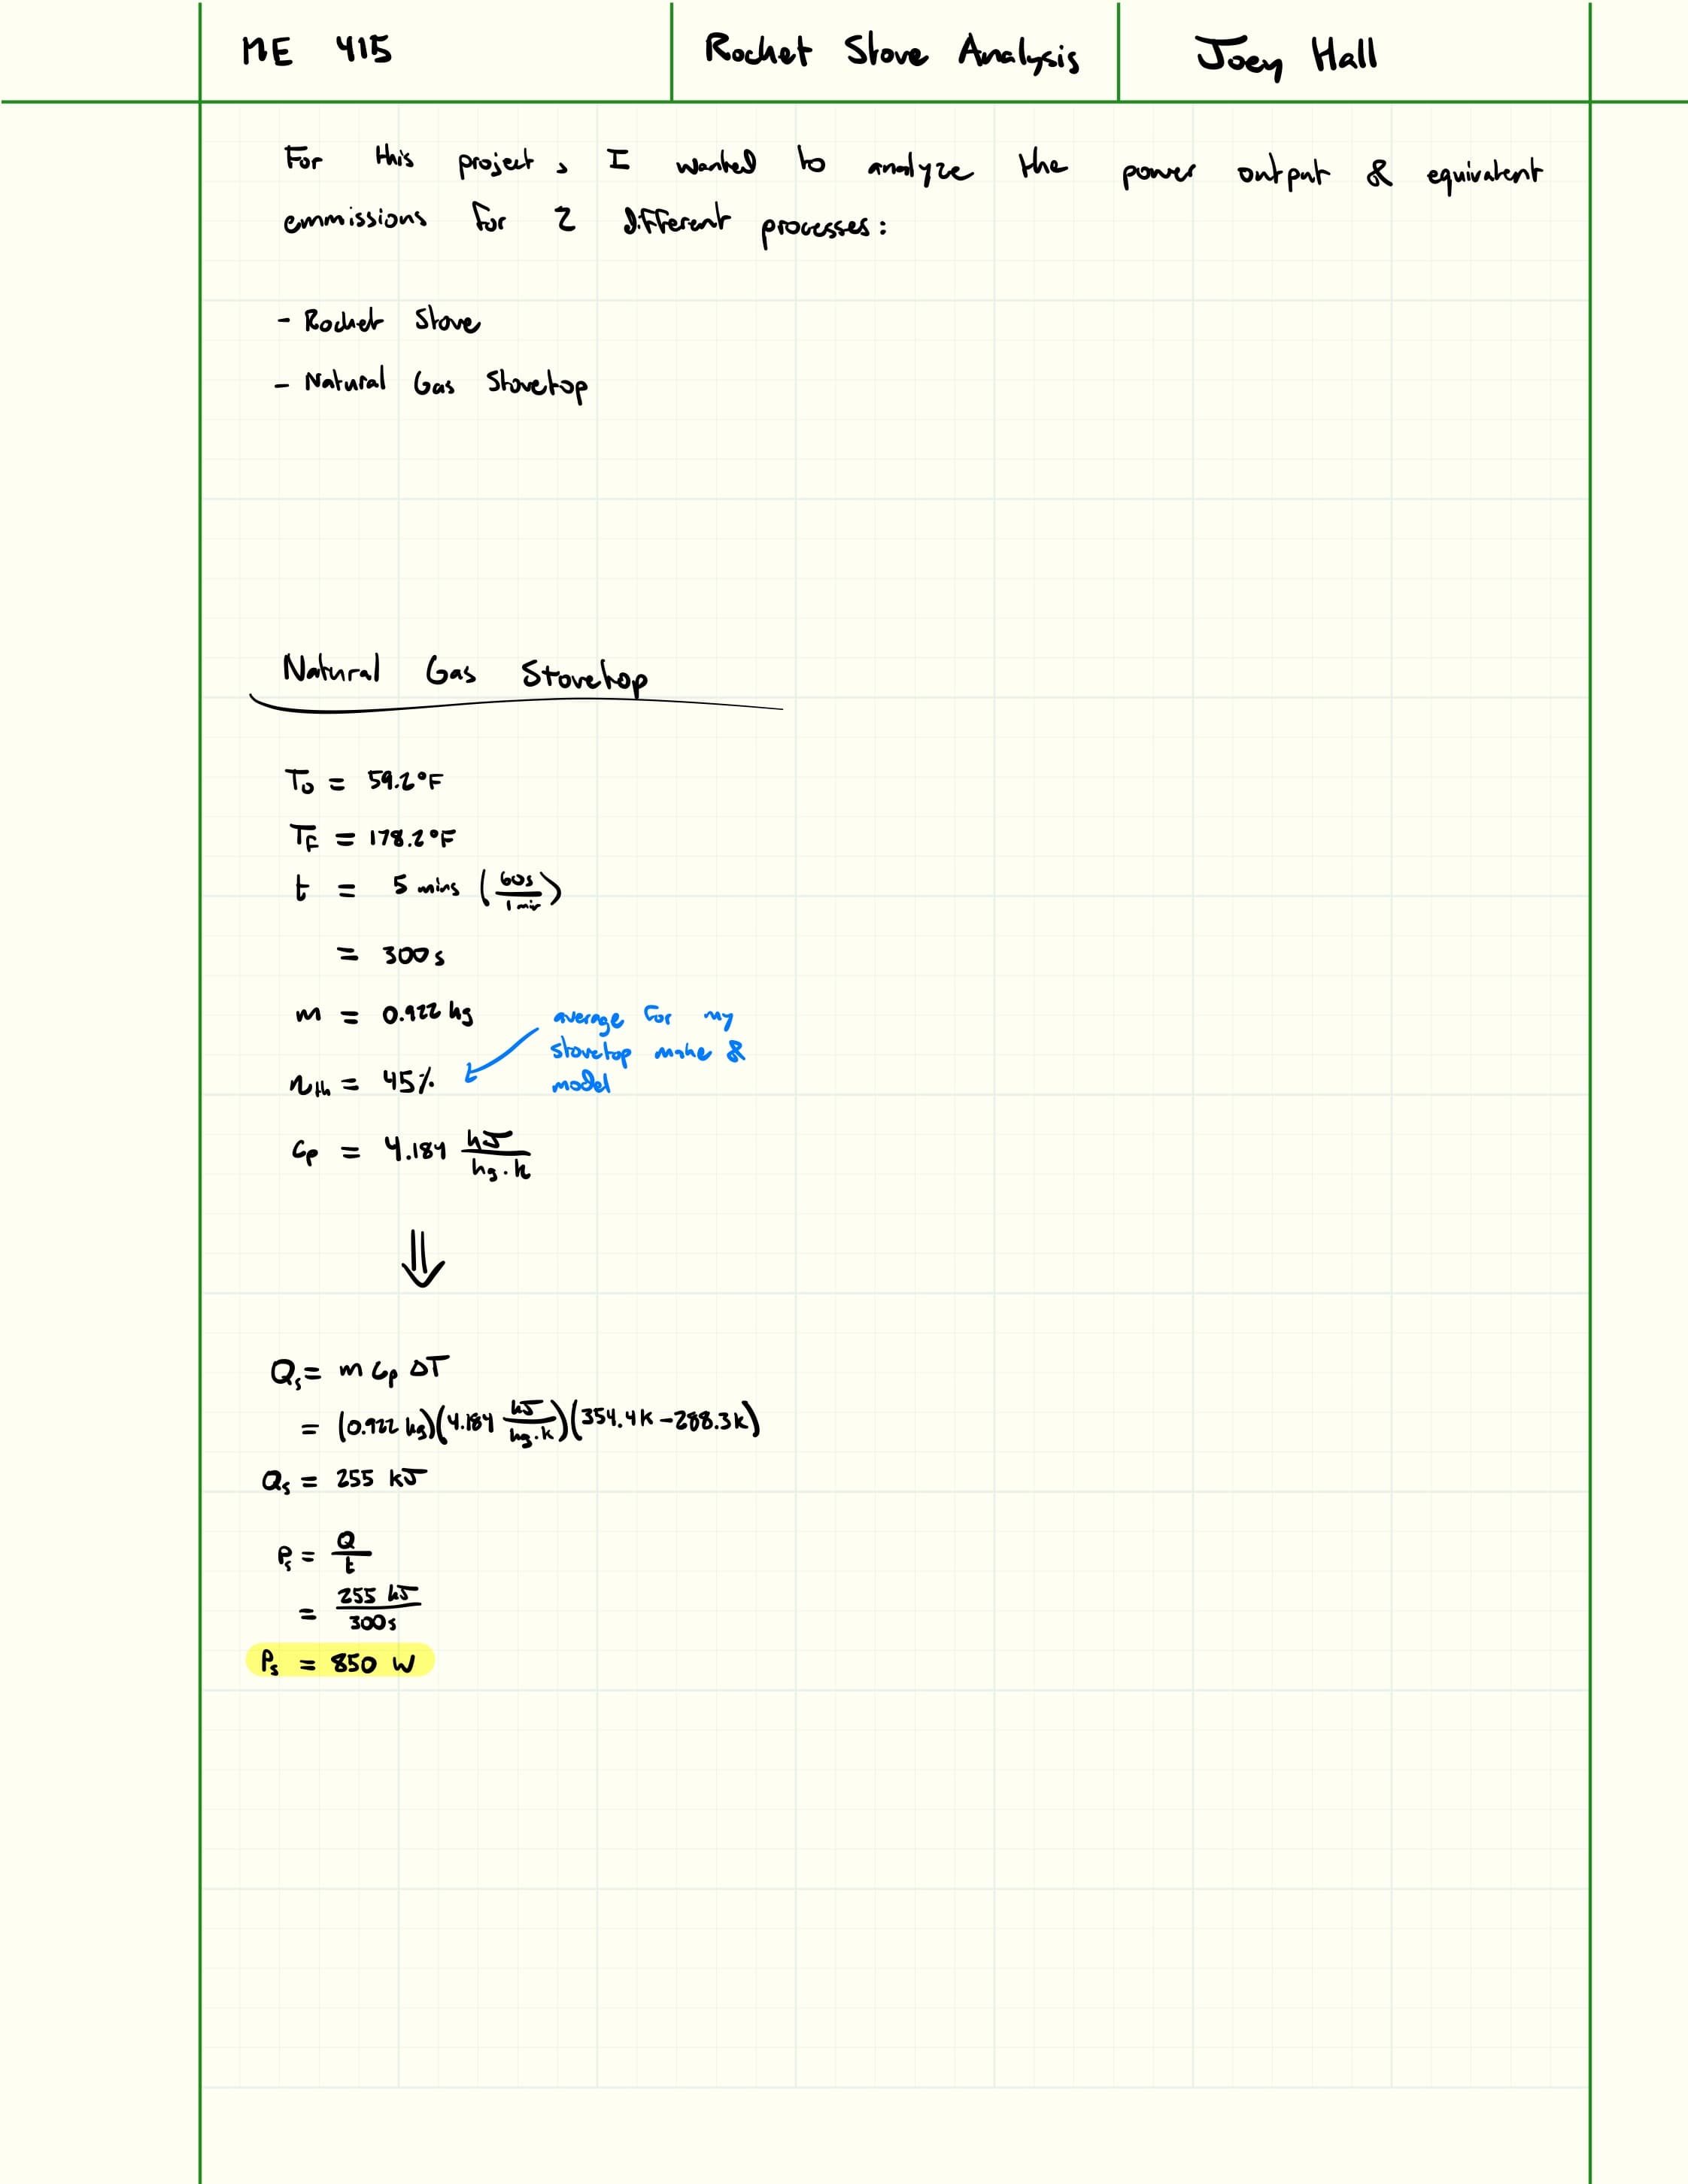 ME 415
Rocket Stove Analysis
Joey Hall
For this project, I wanted to analyze the power output & equivalent
emmissions for 2 different processes:
- Rocket Stove
- Natural Gas Stovetop
Natural Gas Stovetop
T₀ = 59.2°F
T_F = 178.2°F
t = 5 mins (60s / 1 min)
= 300 s
m = 0.922 kg
η_th = 45%
average for my
stovetop make &
model
Cp = 4.184 kJ / kg·K
⇓
Q_s = m Cp ΔT
= (0.922 kg)(4.184 kJ / kg·K)(354.4K - 288.3K)
Q_s = 255 kJ
P_s = Q / t
= 255 kJ / 300 s
P_s = 850 W